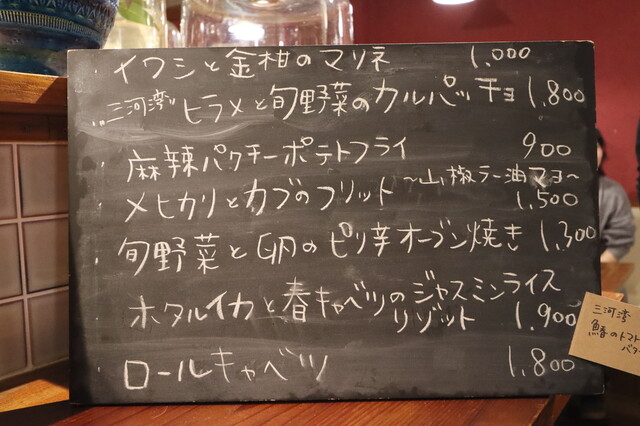 ・イワシと金柑のマリネ 1,000
・"三河湾" ヒラメと旬野菜のカルパッチョ 1,800
・麻辣パクチーポテトフライ 900
・メヒカリとカブのフリット 〜山椒ラー油マヨ〜 1,500
・旬野菜と卵のピリ辛オーブン焼き 1,300
・ホタルイカと春キャベツのジャスミンライス
リゾット 1,900
・ロールキャベツ 1,800
三河湾
鰆のトマト
バター